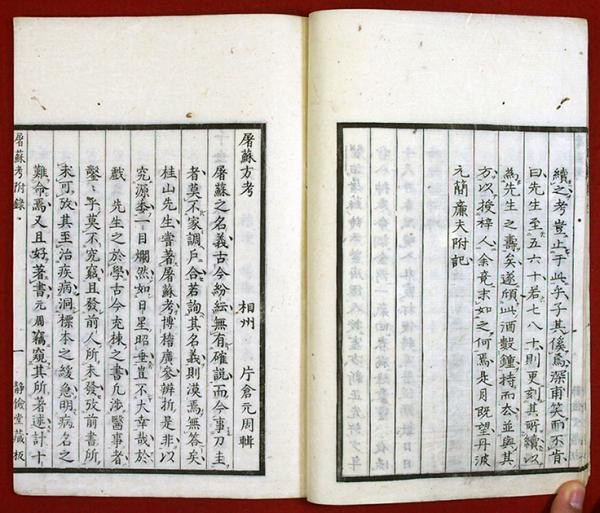 續之考豈止于此乎子其俟焉深甫笑而不肯
曰先生至五六十若七八十則更刻其所續以
為先生之壽矣遂傾此酒數鐘持而去並與其
方以授梓人余竟末如之何焉是月既望丹波
元簡廉夫附記
屠蘇方考
相州 片倉元周輯
屠蘇之名義古今紛紜無有確說而今事刀圭
者莫不家調戶合若詢其名義則漠焉無答矣
桂山先生嘗著屠蘇考博稽廣參辨折是非以
究源委一目爛然如日星昭垂豈不大幸哉於
戲先生之於學古今充棟之書凡涉醫事者
鑿々乎莫不究竅且發前人所未發攷前書所
未可攷其至治疾病洞標本之緩急明病名之
難命焉又且好著書元周竊窺其所著述計十
屠蘇考附錄 一 靜儉堂藏板